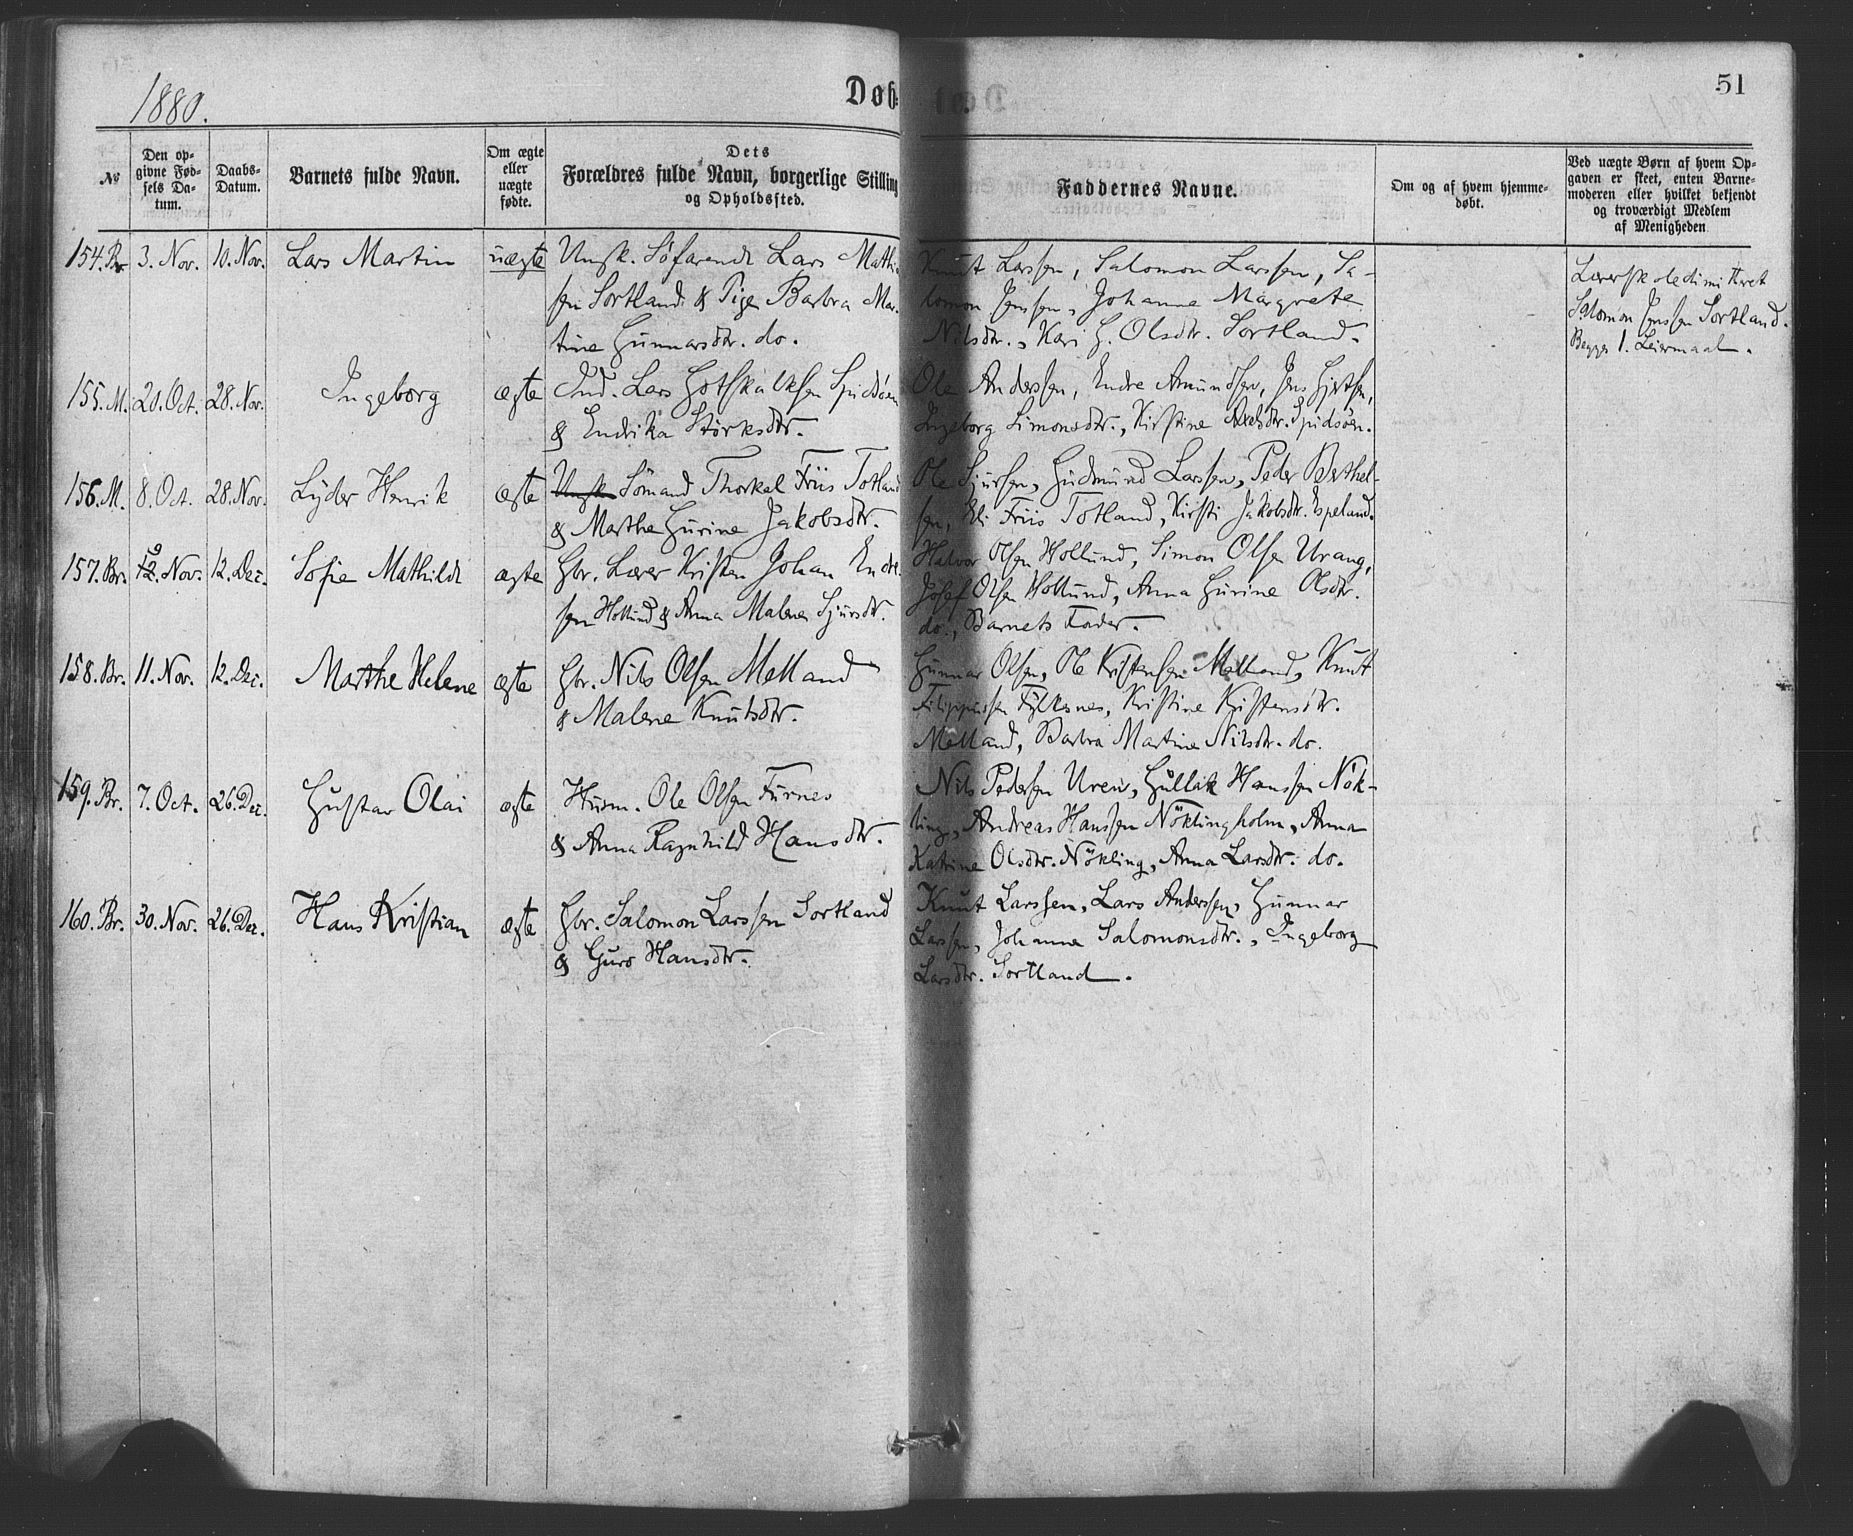 1880.
Døb-
51
№
Den op-
givne Fød-
sels Da-
tum.
Daabs-
Datum.
Barnets fulde Navn.
Om ægte
eller
uægte
fødte.
Dets
Forældres fulde Navn, borgerlige Stilling
og Opholdssted.
Faddernes Navne.
Om og af hvem hjemme-
døbt.
Ved uægte Børn af hvem Op-
gaven er skeet, enten Barne-
moderen eller hvilket bekjendt
og troværdigt Medlem
af Menigheden
154. Br. 3. Nov. 10. Nov. Lars Martin uægte Ungk. Söfarende Lars Mathi-
sen Sortland & Pige Barbra Mar-
tine Gunnarsdtr. do.
Knut Larssen, Salomon Larssen, Sa-
lomon Jenssen, Johanne Margrete
Nilsdtr., Kari G. Olsdtr. Sortland.
Lærerskoledimitteret
Salomon Jenssen Sortland.
Begges 1. Leiermaal.
155. M. 20. Oct. 28. Nov. Ingeborg ægte Ind. Lars Gotskalksen Spidsöen
& Endrika Störksdtr.
Ole Anderssen, Endre Amundsen, Jens Gjertsen,
Ingeborg Simonsdtr., Kirstine Axelsdtr. Spidsöen.
156. M. 8. Oct. 28. Nov. Lyder Henrik ægte Ungk. Sömand Thorkel Friis Totland
& Marthe Gurine Jakobsdtr.
Ole Sjursen, Gudmund Larssen, Peder Berthel-
sen, Eli Friis Totland, Kirsti Jakobsdtr. Espeland.
157. Br. 12. Nov. 12. Dec. Sofie Mathilde ægte Gbr. Lærer Kristen Johan Endre-
sen Hollund & Anna Malene Sjursdtr.
Halvor Olsen Hollund, Simon Olsen Urang,
Josef Olsen Hollund, Anna Gurine Olsdtr.
do., Barnets Fader.
158. Br. 11. Nov. 12. Dec. Marthe Helene ægte Gbr. Nils Olsen Melland
& Malene Knutsdtr.
Gunnar Olsen, Ole Kristensen Melland, Knut
Filippussen Fylkesnes, Kristine Kristensdtr.
Melland, Barbra Martine Nilsdtr. do.
159. Br. 7. Oct. 26. Dec. Gustav Olai ægte Husm. Ole Olsen Furnes
& Anna Ragnhild Hansdtr.
Nils Pedersen Uren, Gullik Hanssen Nök-
ling, Andreas Hanssen Nöklingholm, Anna
Katrine Olsdtr. Nökling, Anna Larsdtr. do.
160. Br. 30. Nov. 26. Dec. Hans Kristian ægte Gbr. Salomon Larssen Sortland
& Guro Hansdtr.
Knut Larssen, Lars Anderssen, Gunnar
Larssen, Johanna Salomonsdtr., Ingeborg
Larsdtr. Sortland.